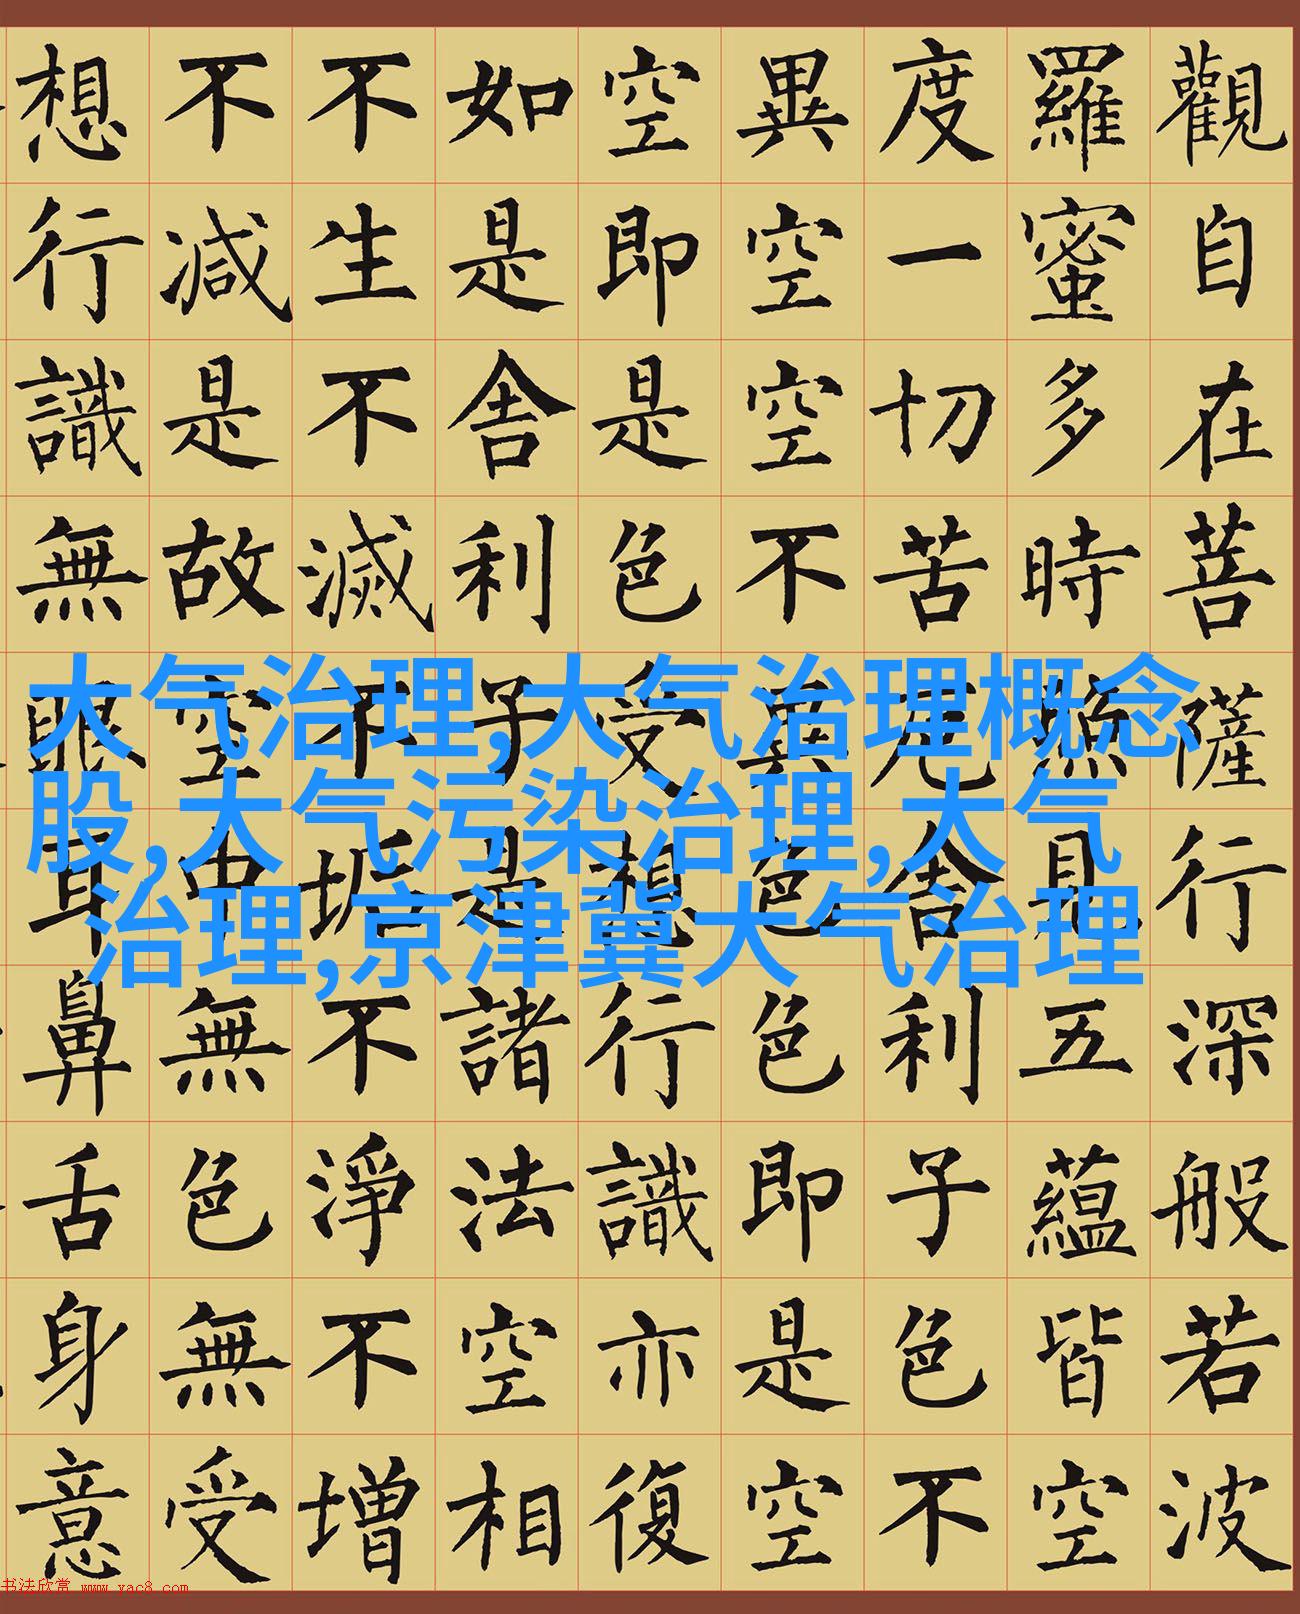 觀自在菩薩行深般若波
羅蜜多時照見五蘊皆空
度一切苦厄舍利子色不
異空空不異色色即是空
空即是色受想行識亦復
如是舍利子是諸法空相
不生不滅不垢不淨不增
不減是故空中無色無受
想行識無眼耳鼻舌身意
大气治理,大气治理概念
股,大气污染治理,大气
治理,京津冀大气治理
书法欣赏 www.yac8.com